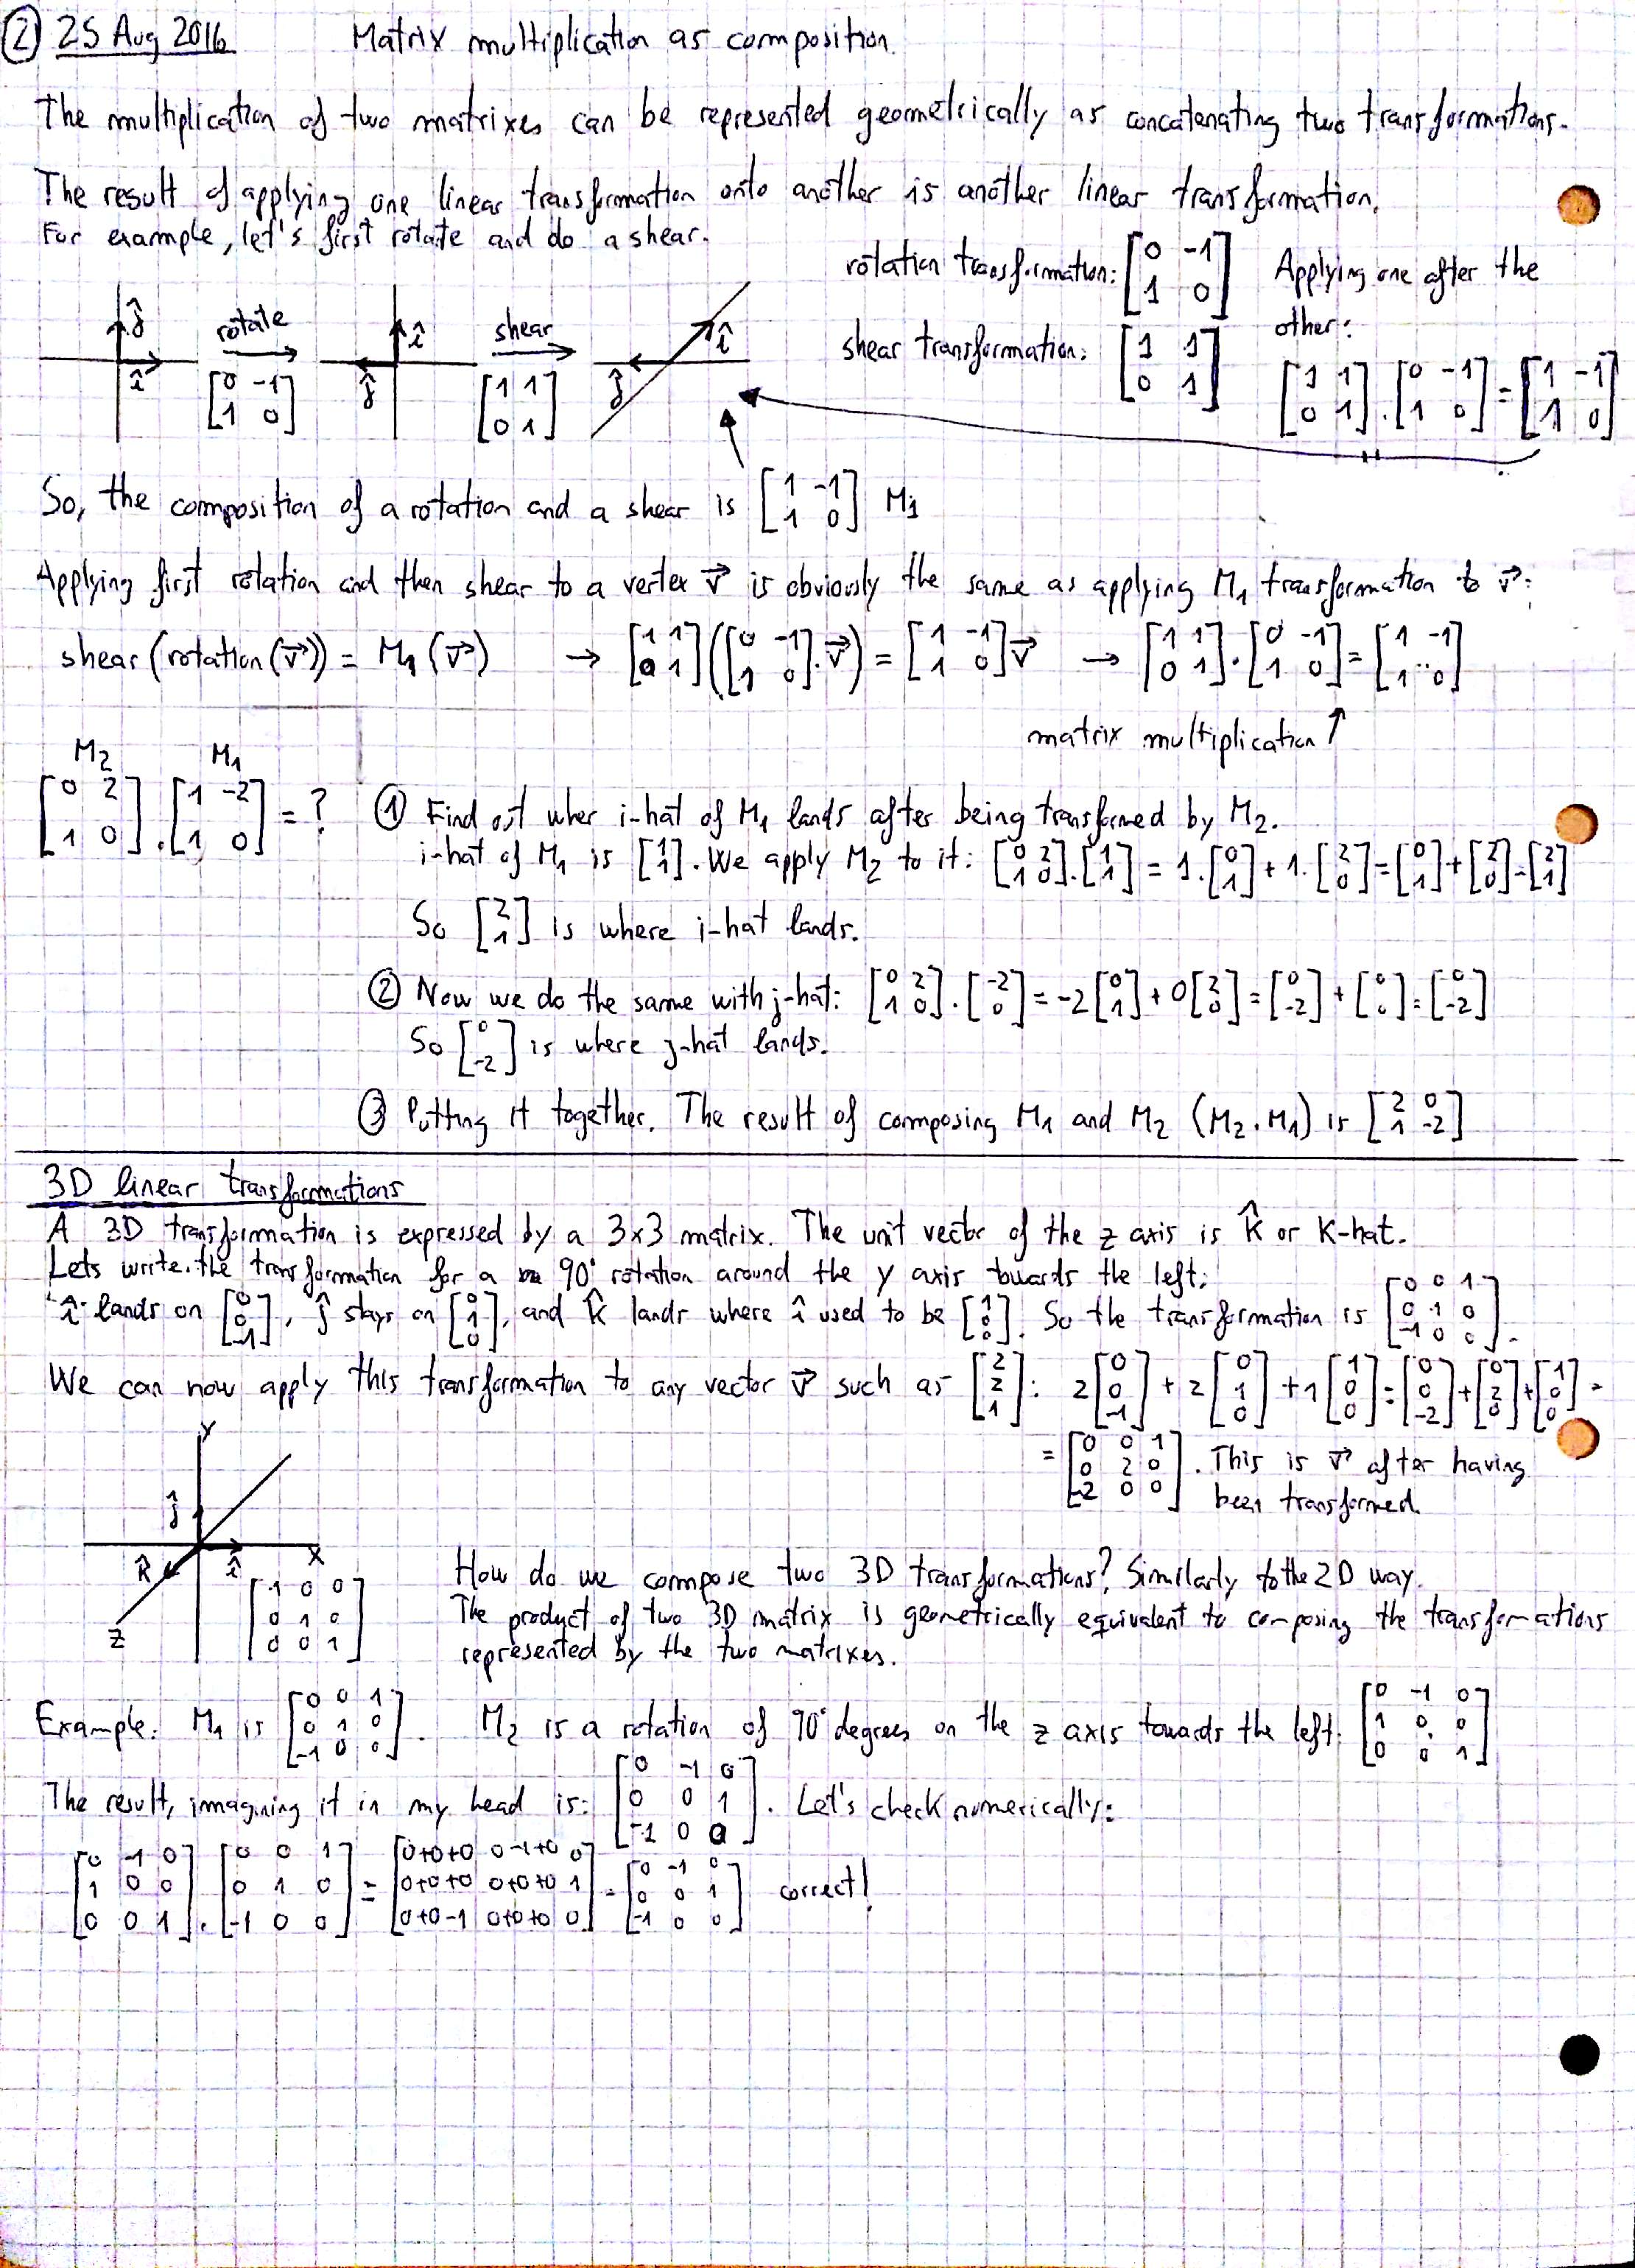 ② 25 Aug 2016 Matrix multiplication as composition.
The multiplication of two matrixes can be represented geometrically as concatenating two transformations.
The result of applying one linear transformation onto another is another linear transformation.
For example, let's first rotate and do a shear.
rotation transformation: [0 -1; 1 0] Applying one after the other:
shear transformation: [1 1; 0 1] [1 1; 0 1] . [0 -1; 1 0] = [1 -1; 1 0]
ĵ î rotate [0 -1; 1 0] î ĵ shear [1 1; 0 1] î ĵ
So, the composition of a rotation and a shear is [1 -1; 1 0] M1
Applying first rotation and then shear to a vertex v⃗ is obviously the same as applying M1 transformation to v⃗:
shear (rotation (v⃗)) = M1 (v⃗) → [1 1; 0 1] ([0 -1; 1 0] . v⃗) = [1 -1; 1 0] v⃗ → [1 1; 0 1] . [0 -1; 1 0] = [1 -1; 1 0]
matrix multiplication ↑
M2 M1
[0 2; 1 0] . [1 -2; 1 0] = ? ① Find out wher i-hat of M1 lands after being transformed by M2.
i-hat of M1 is [1; 1]. We apply M2 to it: [0 2; 1 0] . [1; 1] = 1 . [0; 1] + 1 . [2; 0] = [0; 1] + [2; 0] = [2; 1]
So [2; 1] is where i-hat lands.
② Now we do the same with j-hat: [0 2; 1 0] . [-2; 0] = -2 [0; 1] + 0 [2; 0] = [0; -2] + [0; 0] = [0; -2]
So [0; -2] is where j-hat lands.
③ Putting it together. The result of composing M1 and M2 (M2 . M1) is [2 0; 1 -2]
3D linear transformations
A 3D transformation is expressed by a 3x3 matrix. The unit vector of the z axis is k̂ or K-hat.
Lets write the transformation for a 90° rotation around the y axis towards the left:
î lands on [0; 0; -1], ĵ stays on [0; 1; 0], and k̂ lands where î used to be [1; 0; 0]. So the transformation is [0 0 1; 0 1 0; -1 0 0].
We can now apply this transformation to any vector v⃗ such as [2; 2; 1]: 2 [0; 0; -1] + 2 [0; 1; 0] + 1 [1; 0; 0] = [0; 0; -2] + [0; 2; 0] + [1; 0; 0] =
= [0 0 1; 0 2 0; -2 0 0]. This is v⃗ after having
been transformed.
Y ĵ k̂ î X Z [1 0 0; 0 1 0; 0 0 1]
How do we compose two 3D transformations? Similarly to the 2D way.
The product of two 3D matrix is geometrically equivalent to composing the transformations
represented by the two matrixes.
Example: M1 is [0 0 1; 0 1 0; -1 0 0]. M2 is a rotation of 90° degrees on the z axis towards the left: [0 -1 0; 1 0 0; 0 0 1]
The result, imagining it in my head is: [0 -1 0; 0 0 1; -1 0 0]. Let's check numerically:
[0 -1 0; 1 0 0; 0 0 1] . [0 0 1; 0 1 0; -1 0 0] = [0+0+0 0-1+0 0; 0+0+0 0+0+0 1; 0+0-1 0+0+0 0] = [0 -1 0; 0 0 1; -1 0 0] correct!